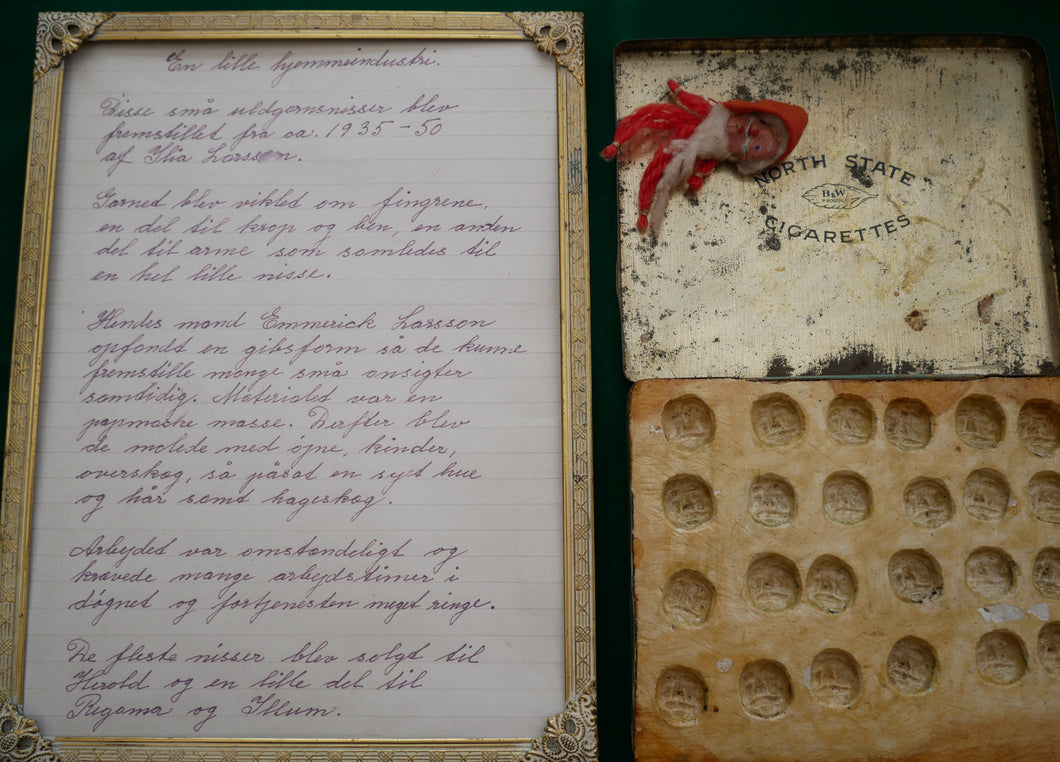 En lille hjemmeindustri.
Disse små uldgarnsnisser blev
fremstillet fra ca. 1935-50
af Ilia Larssen.
Garned blev vikled om fingrene,
en del til krop og ben, en anden
del til arme som samledes til
en hel lille nisse.
Hendes mand Emmerick Larsson
opfandt en gibsform så de kunne
fremstille mange små ansigter
samtidig. Materialed var en
papmaske masse. Derfter blev
de malede med øjne, kinder,
overskæg, så påsat en syet hue
og hår samt hageskæg.
Arbejdet var omstændeligt og
krævede mange arbejdstimer i
døgnet og fortjenesten meget ringe.
De fleste nisser blev solgt til
Herold og en lille del til
Rigama og Illum.
NORTH STATE
B&W
CIGARETTES